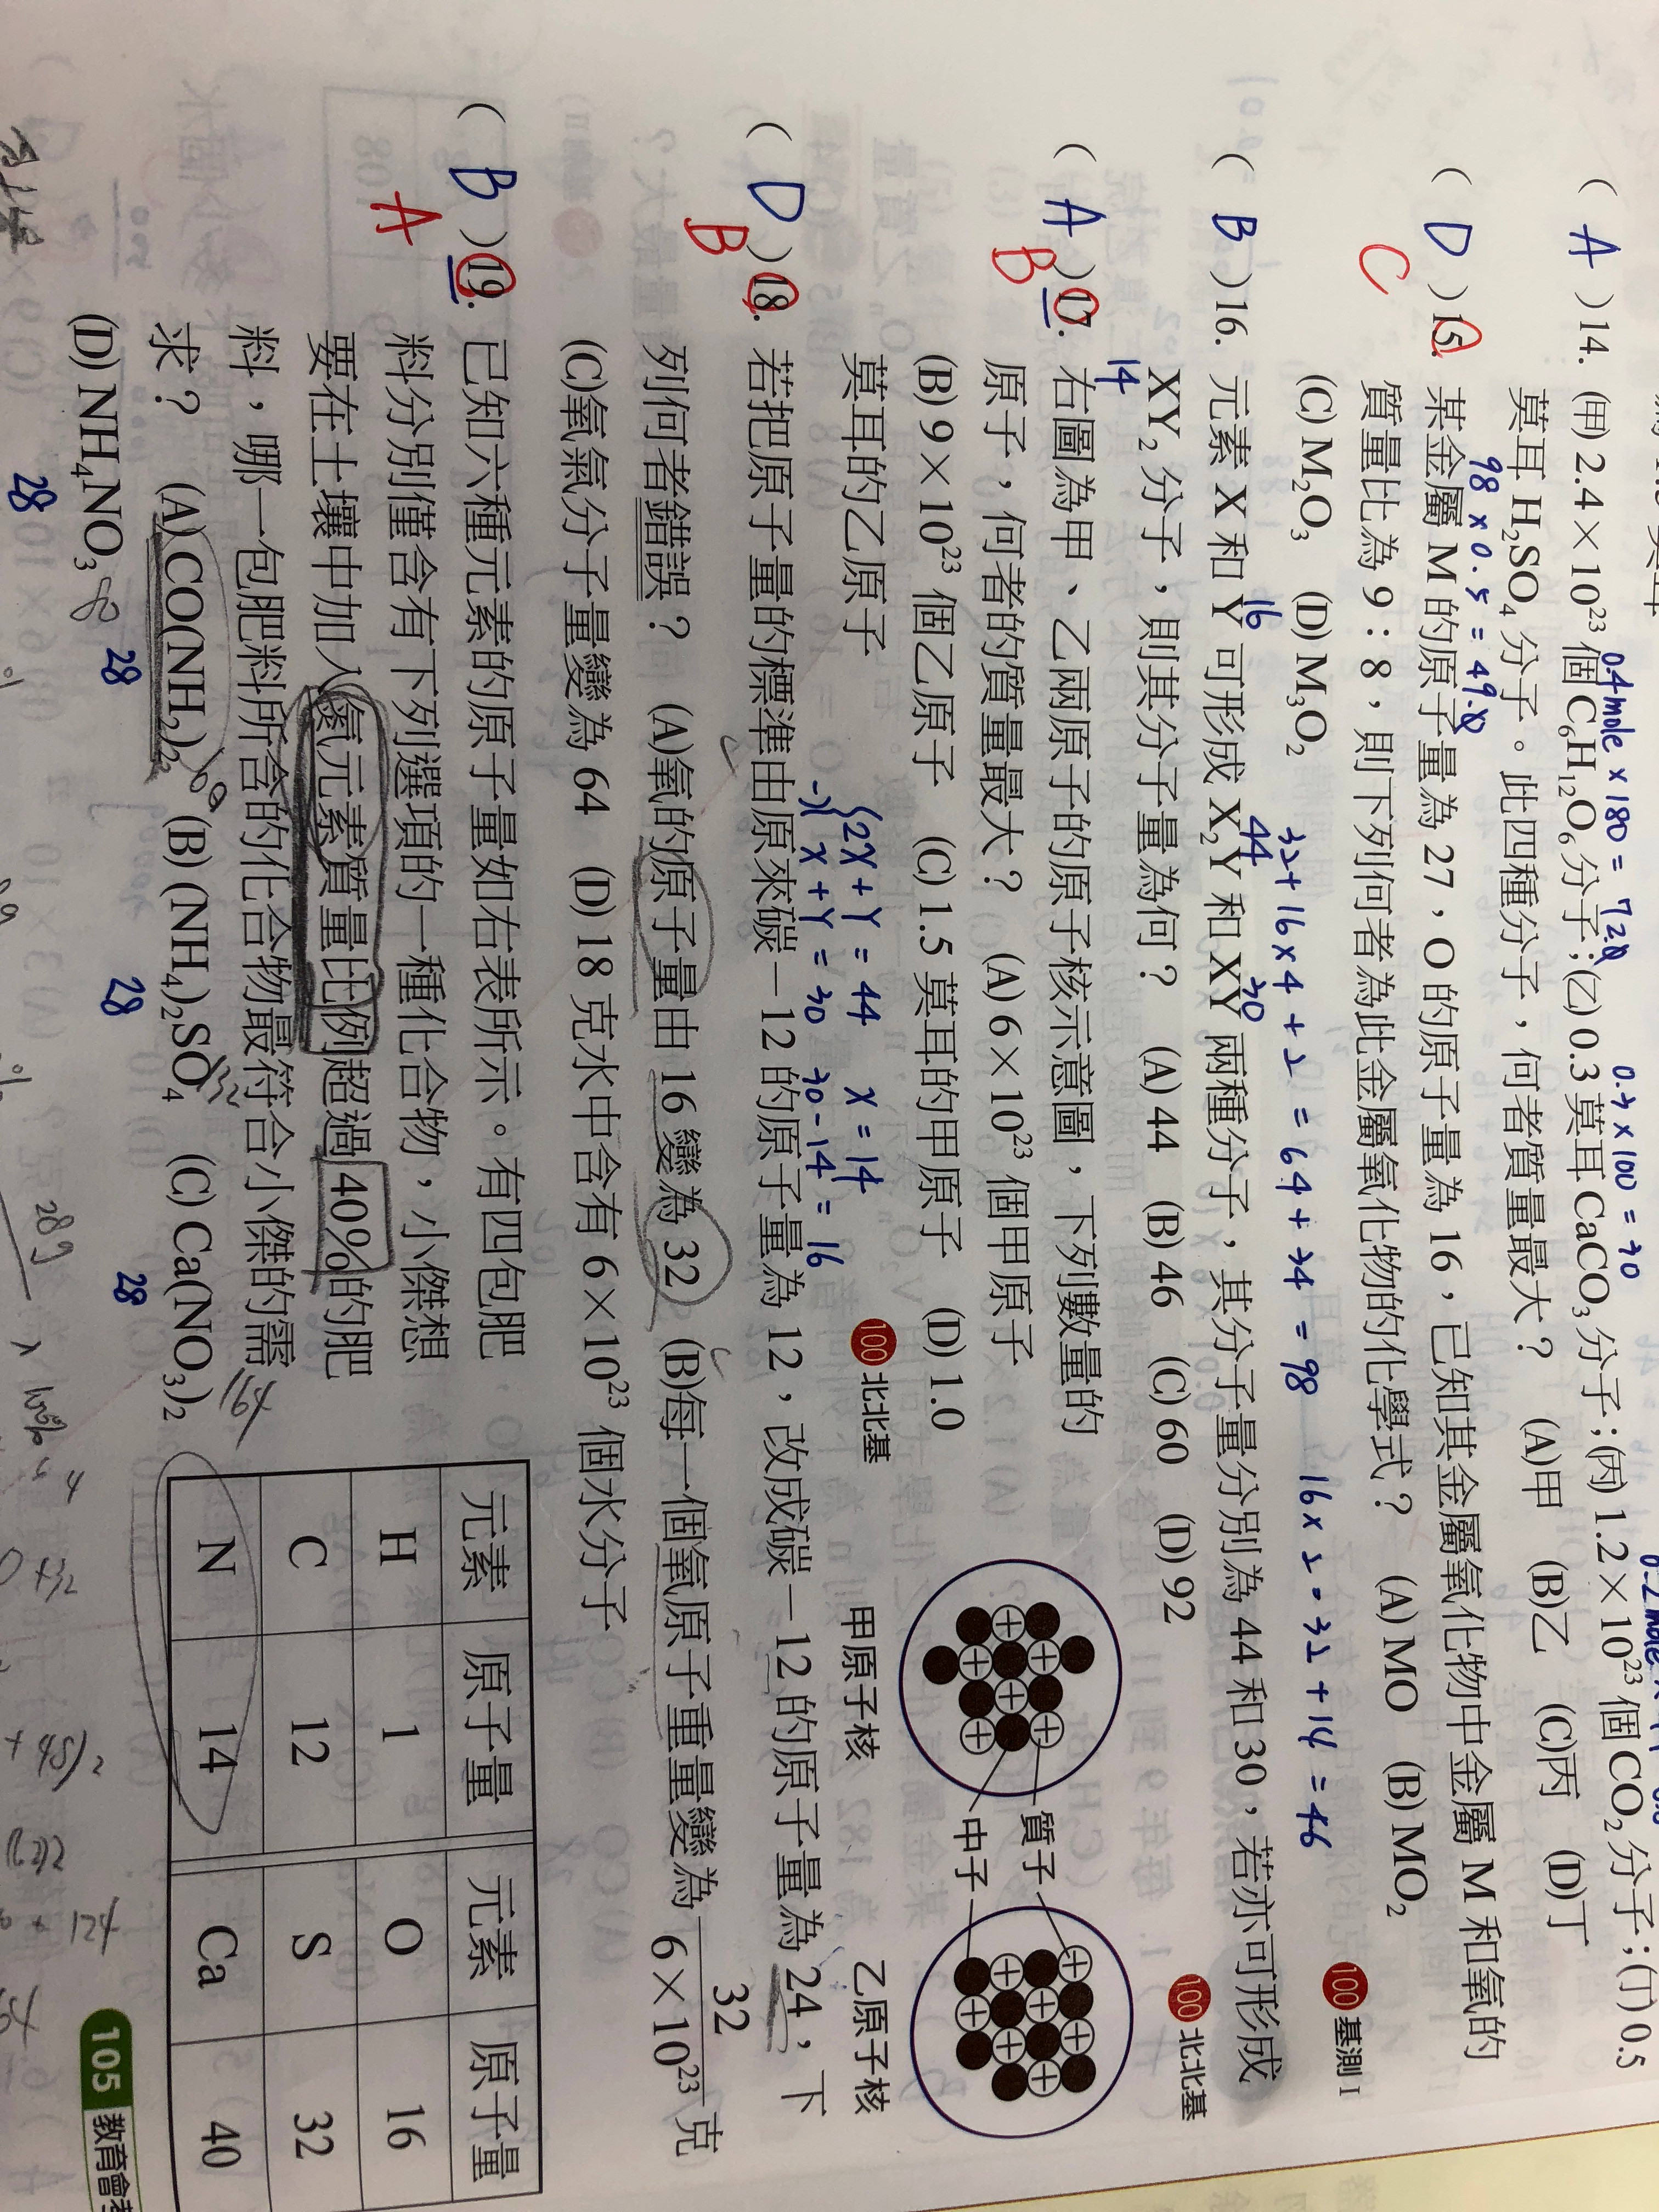 0.4mole × 180 = 72g
0.3 × 100 = 30
( A )14. (甲) 2.4×10²³ 個 C₆H₁₂O₆ 分子；(乙) 0.3 莫耳 CaCO₃ 分子；(丙) 1.2×10²³ 個 CO₂ 分子；(丁) 0.5
莫耳 H₂SO₄ 分子。此四種分子，何者質量最大？ (A)甲 (B)乙 (C)丙 (D)丁
98 × 0.5 = 49g
( D )15. 某金屬 M 的原子量為 27，O 的原子量為 16，已知其金屬氧化物中金屬 M 和氧的
C
質量比為 9：8，則下列何者為此金屬氧化物的化學式？ (A) MO (B) MO₂
(C) M₂O₃ (D) M₃O₂
100 基測 I
32+ 16 × 4 + 2 = 64 + 34 = 98
16 × 2 = 32 + 14 = 46
16
44
30
( B )16. 元素 X 和 Y 可形成 X₂Y 和 XY 兩種分子，其分子量分別為 44 和 30，若亦可形成
XY₂ 分子，則其分子量為何？ (A) 44 (B) 46 (C) 60 (D) 92
100 北北基
14
( A )17. 右圖為甲、乙兩原子的原子核示意圖，下列數量的
B
原子，何者的質量最大？ (A) 6×10²³ 個甲原子
(B) 9×10²³ 個乙原子 (C) 1.5 莫耳的甲原子 (D) 1.0
莫耳的乙原子
100 北北基
質子
中子
甲原子核
乙原子核
2X + Y = 44 X = 14
-) X + Y = 30 30 - 14 = 16
( D )18. 若把原子量的標準由原來碳－12 的原子量為 12，改成碳－12 的原子量為 24，下
B
列何者錯誤？ (A)氧的原子量由 16 變為 32 (B)每一個氧原子重量變為 32/6×10²³ 克
(C)氧氣分子量變為 64 (D) 18 克水中含有 6×10²³ 個水分子
( B )19. 已知六種元素的原子量如右表所示。有四包肥
A
料分別僅含有下列選項的一種化合物，小傑想
要在土壤中加入氮元素質量比例超過 40%的肥
料，哪一包肥料所含的化合物最符合小傑的需
求？ (A) CO(NH₂)₂ (B) (NH₄)₂SO₄ (C) Ca(NO₃)₂
60
164
28
28
28
(D) NH₄NO₃
28
元素 原子量 元素 原子量
H 1 O 16
C 12 S 32
N 14 Ca 40
28g
105 教育會